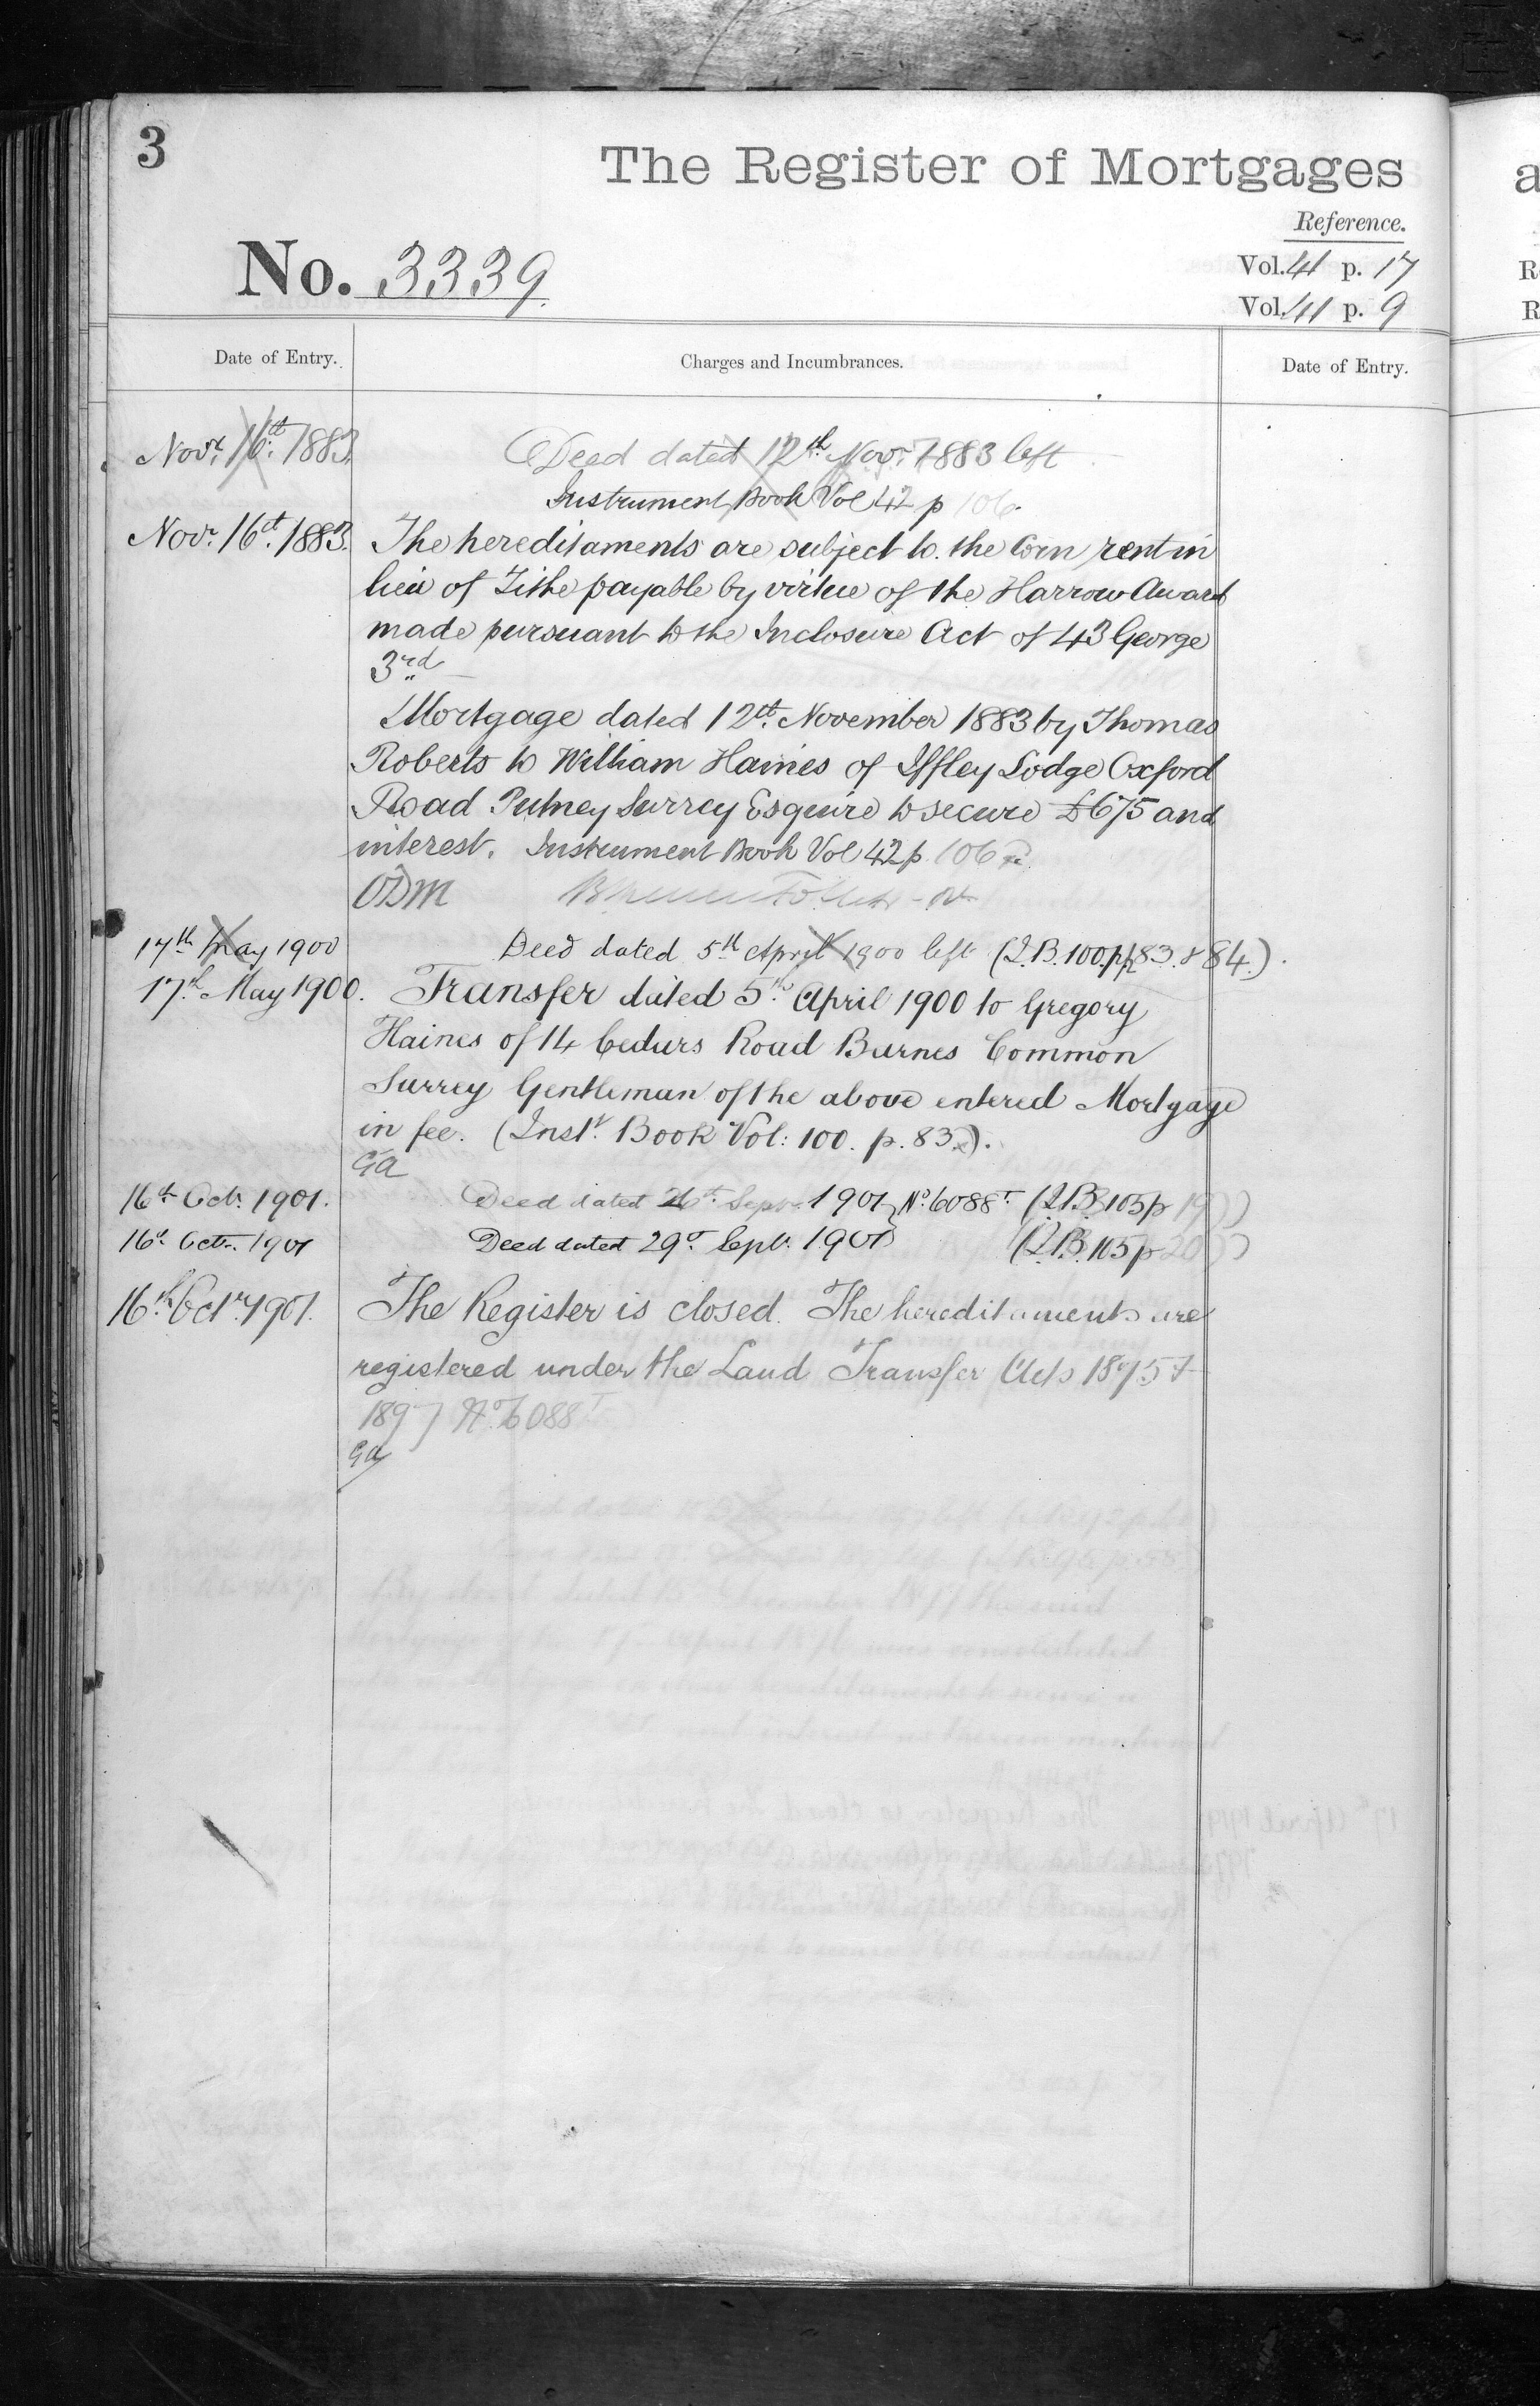 3
The Register of Mortgages
Reference.
No. 3339.
Vol. 41 p. 17
Vol. 41 p. 9
Date of Entry.
Charges and Incumbrances.
Date of Entry.
Novr. 16th. 1883.
Deed dated 12th Novr. 1883 left
Instrument Book Vol 42 p 106.
Novr. 16th. 1883.
The hereditaments are subject to the Corn rent in
lieu of Tithe payable by virtue of the Harrow Award
made pursuant to the Inclosure Act of 43 George
3rd
Mortgage dated 12th. November 1883 by Thomas
Roberts to William Haines of Iffley Lodge Oxford
Road Putney Surrey Esquire to secure £675 and
interest. Instrument Book Vol 42 p. 106
ODM
17th May 1900
Deed dated 5th April 1900 left (I.B. 100. pp 83. & 84.).
17th. May 1900.
Transfer dated 5th. April 1900 to Gregory
Haines of 14 Cedars Road Barnes Common
Surrey Gentleman of the above entered Mortgage
in fee. (Instt. Book Vol: 100. p. 83.).
GA
16th Octr. 1901.
Deed dated Sept. 1901 No. 6088T (I.B. 105 p 19
16th Octr. 1901
Deed dated 29th Sept. 1901 (I.B. 105 p 20
16th Octr. 1901.
The Register is closed. The hereditaments are
registered under the Land Transfer Acts 1875 &
1897 No. 6088T
Ga
a
R
R